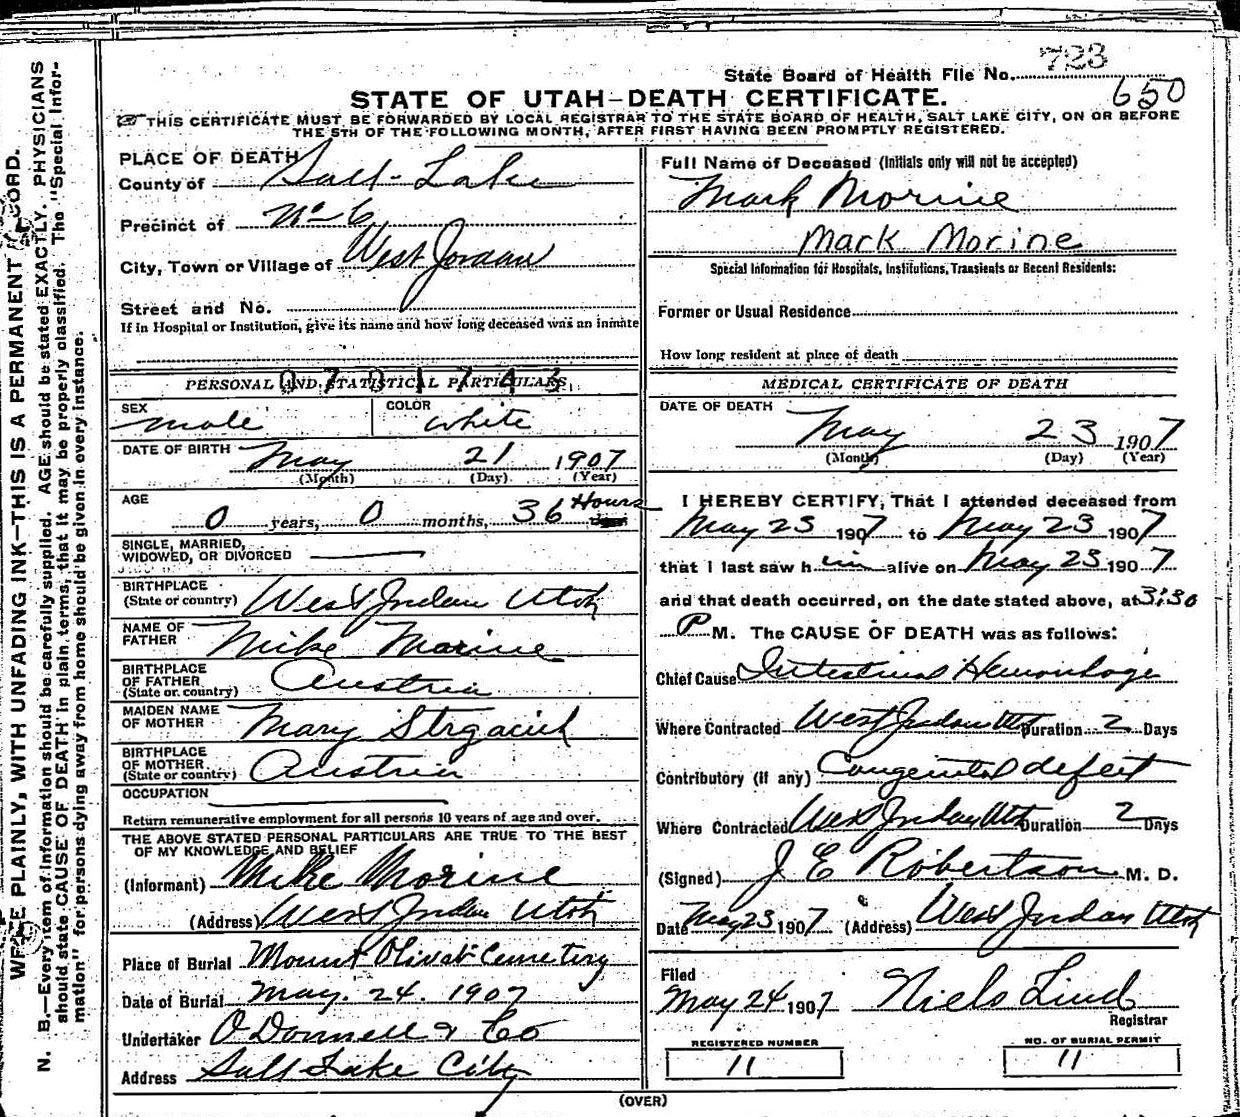 723
State Board of Health File No.
650
STATE OF UTAH—DEATH CERTIFICATE.
THIS CERTIFICATE MUST BE FORWARDED BY LOCAL REGISTRAR TO THE STATE BOARD OF HEALTH, SALT LAKE CITY, ON OR BEFORE
THE 5TH OF THE FOLLOWING MONTH, AFTER FIRST HAVING BEEN PROMPTLY REGISTERED.
WRITE PLAINLY, WITH UNFADING INK—THIS IS A PERMANENT RECORD.
N. B.—Every item of information should be carefully supplied. AGE should be stated EXACTLY. PHYSICIANS
should state CAUSE OF DEATH in plain terms, that it may be properly classified. The "Special Infor-
mation" for persons dying away from home should be given in every instance.
PLACE OF DEATH
County of Salt Lake
Precinct of No 6
City, Town or Village of West Jordan
Street and No.
If in Hospital or Institution, give its name and how long deceased was an inmate
PERSONAL AND STATISTICAL PARTICULARS.
SEX male COLOR white
DATE OF BIRTH May 21 1907
(Month) (Day) (Year)
AGE 0 years, 0 months, 36 Hours
SINGLE, MARRIED,
WIDOWED, OR DIVORCED
BIRTHPLACE
(State or country) West Jordan Utah
NAME OF
FATHER Mike Marine
BIRTHPLACE
OF FATHER
(State or country) Austria
MAIDEN NAME
OF MOTHER Mary Strgacich
BIRTHPLACE
OF MOTHER
(State or country) Austria
OCCUPATION
Return remunerative employment for all persons 10 years of age and over.
THE ABOVE STATED PERSONAL PARTICULARS ARE TRUE TO THE BEST
OF MY KNOWLEDGE AND BELIEF
(Informant) Mike Morine
(Address) West Jordan Utah
Place of Burial Mount Olivet Cemetery
Date of Burial May. 24. 1907
Undertaker O'Donnell & Co
Address Salt Lake City
Full Name of Deceased (Initials only will not be accepted)
Mark Morine
Mark Morine
Special Information for Hospitals, Institutions, Transients or Recent Residents:
Former or Usual Residence
How long resident at place of death
MEDICAL CERTIFICATE OF DEATH
DATE OF DEATH May 23 1907
(Month) (Day) (Year)
I HEREBY CERTIFY, That I attended deceased from
May 23 1907 to May 23 1907
that I last saw him alive on May 23 1907
and that death occurred, on the date stated above, at 3:30
P M. The CAUSE OF DEATH was as follows:
Chief Cause Intestinal Hemorrhage
Where Contracted West Jordan Ut Duration 2 Days
Contributory (if any) Congenital defect
Where Contracted West Jordan Ut Duration 2 Days
(Signed) J E Robertson M. D.
Date May 23 1907 (Address) West Jordan Utah
Filed
May 24 1907 Niels Lind
Registrar
REGISTERED NUMBER
11
NO. OF BURIAL PERMIT
11
(OVER)